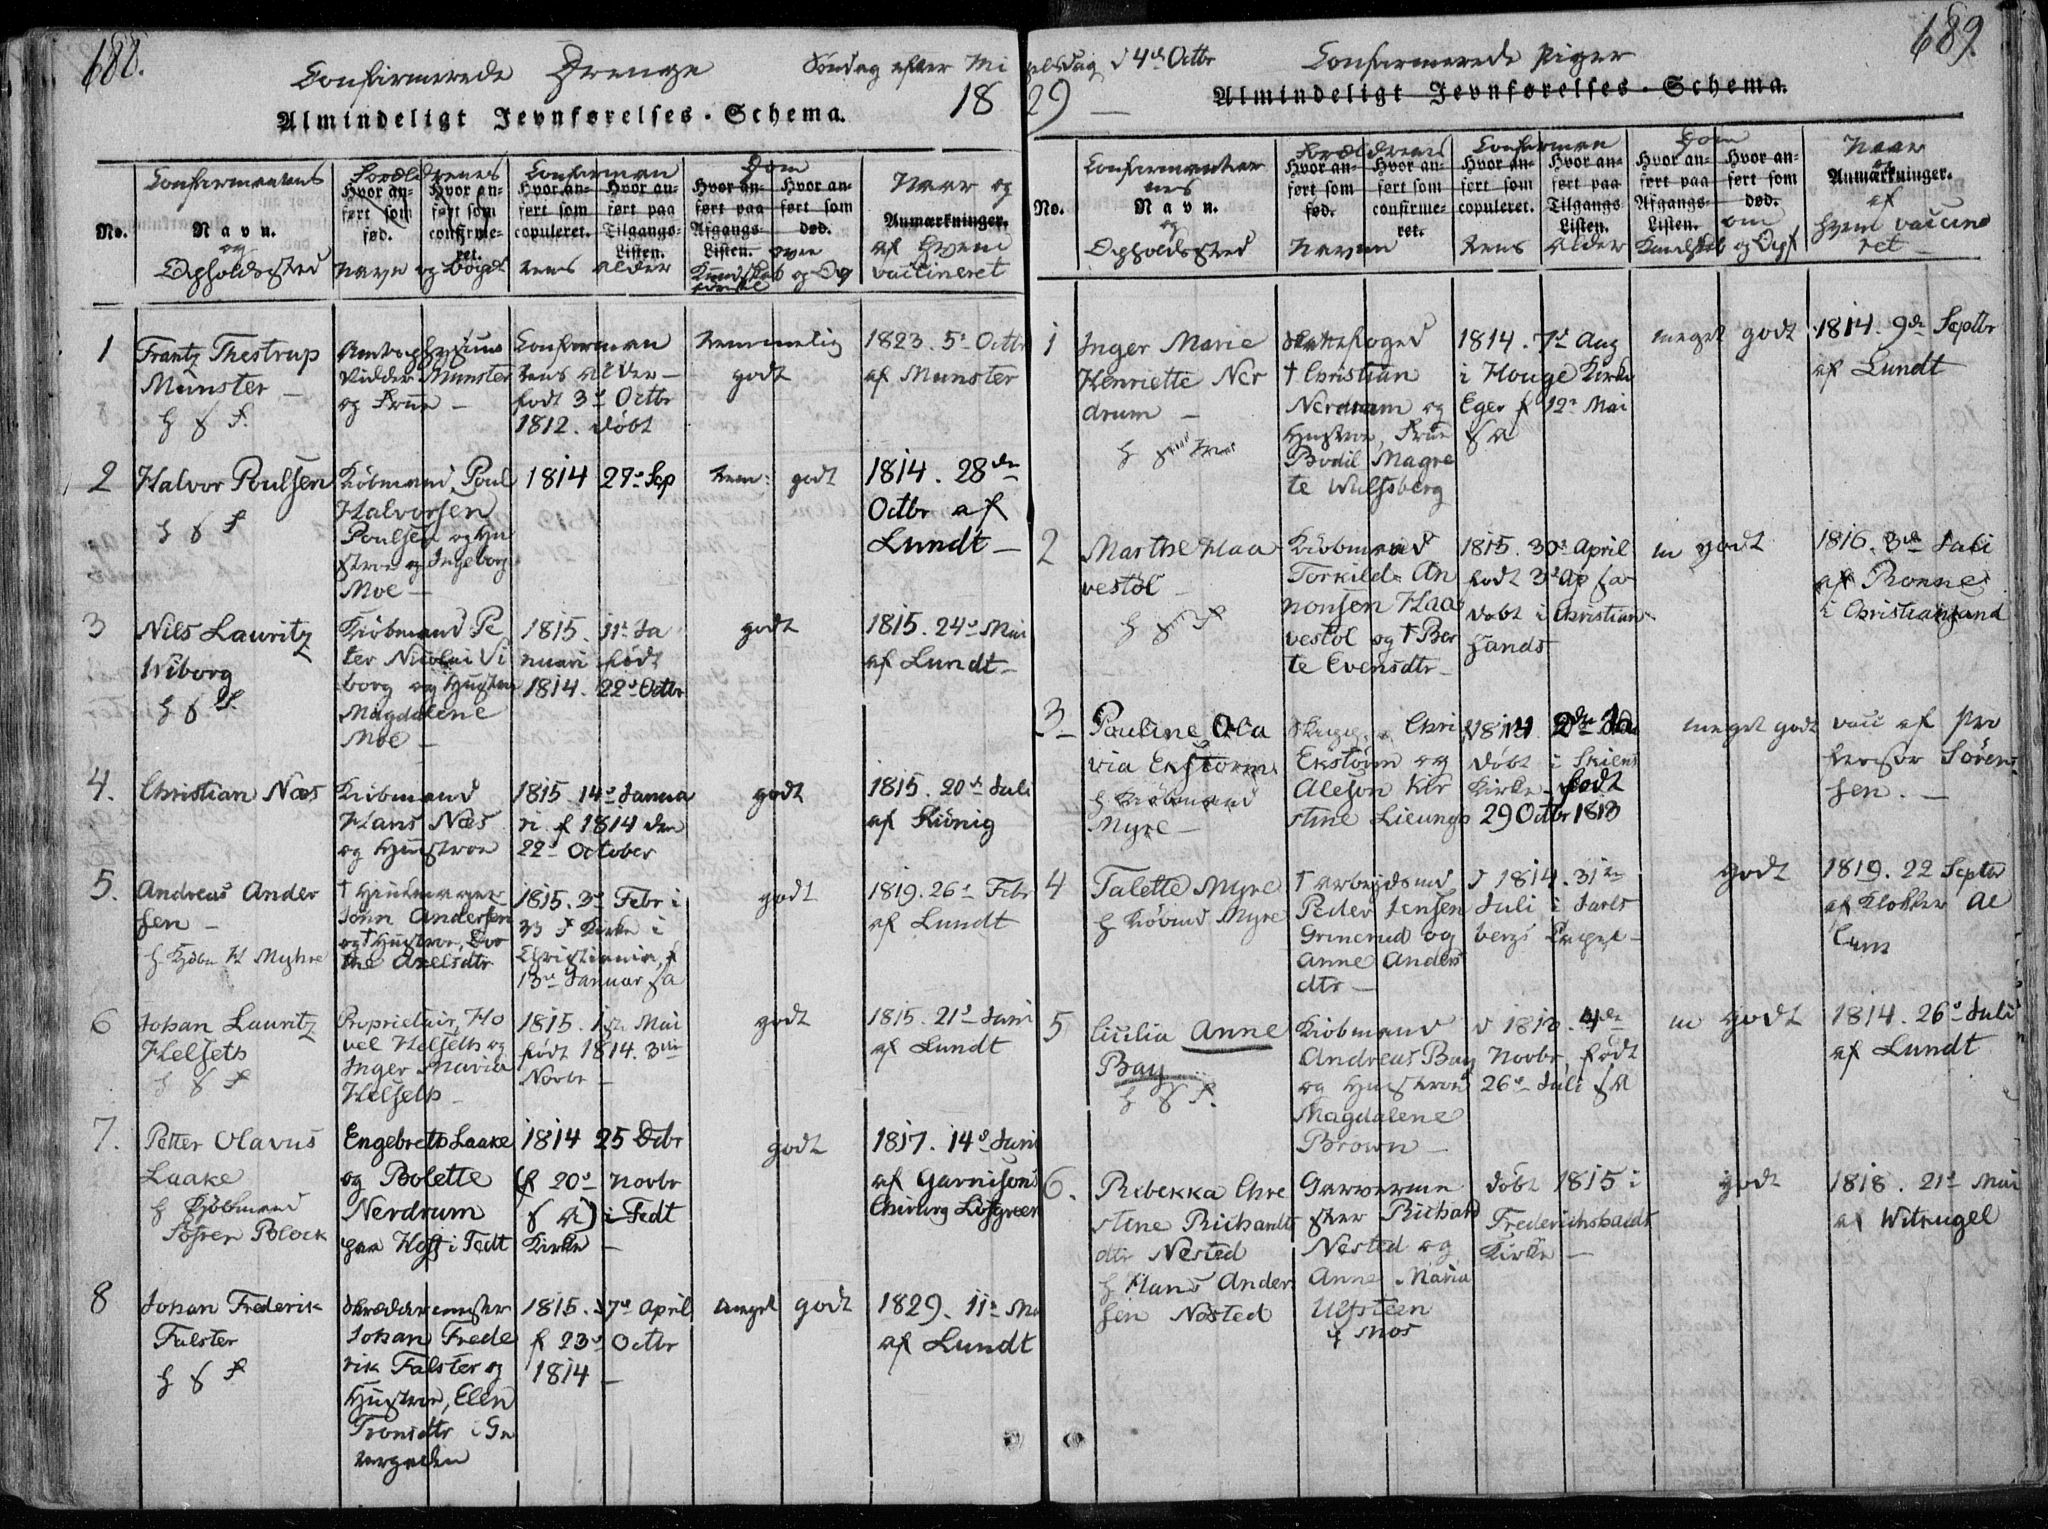 688.
Confirmerede Drenge
Søndag efter Mi
18
Almindeligt Jevnførelses-Schema.
No.
Confirmantens
Navn.
og
Opholdssted
Forældrenes
Hvor anført som fød.
Hvor anført som confirmeret.
Navn og Borgl
Confirman
Hvor anført som copuleret.
Hvor anført paa Tilgangs-Listen.
tens Alder
Dom
Hvor anført paa Afgangs-Listen.
Hvor anført som død.
over
Kundskab og Op
førsel
Naar og
Anmærkninger.
af Hvem
vaccineret
1
Frantz Thestrup
Munster –
Ridder Munster
og Frue –
Confirman
tens Alder –
født 3d Octbr
1812. døbt
temmelig
godt
1823. 5t Octbr
af Munster
2
Halvor Poulsen
Kiøbmand Poul
Halvorsen
Poulsen og Hu
stroe Ingeborg
Moe –
1814 27d Sep
tem: godt
1814. 28de
Octbr af
Lundt –
3
Nils Lauritz
Wiborg
Kiøbmand Pe
ter Nicolai Vi
borg og Hustru
Magdalene
Moe –
1815. 11t Ja
nuari født
1814. 22d Octbr
godt
1815. 24d Mai
af Lundt –
4.
Christian Næs
Kiøbmand
Hans Næs
og Hustroe
1815. 14d Janua
ri f 1814 den
22d October
godt
1815. 20de Juli
af König
5.
Andreas Ander
sen –
H Kjøbm H Myhre
† Hjulmager
John Andersen
og † Hustroe, Dor
the Axelsdtr
1815. 3d Febr i
Kirke i
Christiania, f
13de Januar s A
godt
1819. 26d Febr
af Lundt
6
Johan Lauritz
Helseth
Proprietair Ho
vel Helseth og
Inger Maria
Helseth –
1815. 1ste Mai
født 1814. 3die
Novbr –
godt
1815. 21d Juni
af Lundt
7.
Petter Olavus
Laake
H Kjøbmand
Søfren Block
Engebreth Laake
og Bolette
Nerdrum
paa Hoff i Fedt
1814 25 Dcbr
(f 20d Novbr
s A) i Fedt
Kirke –
godt
1817. 14d Juni
af Garnisons
Chirurg Løfgreen
8
Johan Frederik
Falster
Skrædermester
Johan Frede
rik Falster og
Hustroe, Elen
Tronsdtr i Sn
1815. 17d April
f 23d Octbr
1814 –
meget godt
1829. 11t Ma
af Lundt
689.
elsdag d 4de Octbr
29 –
Confirmerede Piger
Almindeligt Jevnførelses-Schema.
No.
Confirmanter
nes
Navn.
og
Opholdssted
Forældrenes
Hvor anført som fød.
Hvor anført som confirmeret.
Navne
Confirman
Hvor anført som copuleret.
Hvor anført paa Tilgangs Listen.
tens Alder
Dom
Hvor anført paa Afgangs-Listen.
Hvor anført som død.
om
Kundskab og Opf
Naar
og
Anmærkninger.
af
Hvem vaccine
ret
1
Inger Marie
Henriette Ner
drum –
Skattefoged
† Christian
Nerdrum og
Hustroe, Frue
Bodil Magre
te Wulfsberg
1814. 7d Aug
i Houge Kirke
Eger f 12t Mai
s A
meget godt
1814. 9de Septbr
af Lundt
2
Marthe Haa
vestøl –
Kiøbmand
Torkild An
nonsen Haa
vestøl og † Ber
te Evensdtr –
1815. 30d April
født 3d Ap s a
døbt i Christian
sands
m godt
1816. 3de Juli
af Rønne
i Christiansand
3
Pauline Ola
via Ekstorm
H Kiøbmand
Myre –
Skipp. Chri
Ekstørm og
Aleson Kir
stine Lieungs
døbt i Skiens
Kirke – født
29 Octbr 1813
meget godt
vacc af Pro
fessor Søren
sen. –
4
Talette Myre
H Kiøbmd Myre
† Arbeidsmd
Peder Jensen
Grinerud og
Anne Anders
dtr –
d 1814. 31te
Juli i Jarls
bergs Capel –
godt
1819. 22 Septbr
af Klokker Al
5
Cicilia Anne
Bay
Kiøbmand
Andreas Bay
og Hustroe
Magdalene
Brown –
d 1813. 4de
Novbr, født
26d Juli s A
m godt
1814. 26d Juli
af Lundt
6.
Rebekka Chri
stine Richardts
dtr Nøsted
H Hans Ander
sen Nøsted
Garverme
ster Richard
Nøsted og
Anne Maria
Ulfsteen
af Mos
døbt 1815 i
Frederichshaldt
Kirke –
godt
1818. 21d Mai
af Witrugel